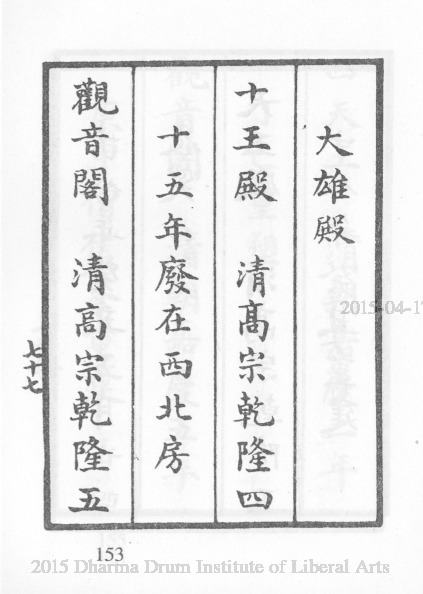 大雄殿
十王殿 清高宗乾隆四
十五年廢在西北房
觀音閣 清高宗乾隆五
七十七
153
2015-04-1
2015 Dharma Drum Institute of Liberal Arts